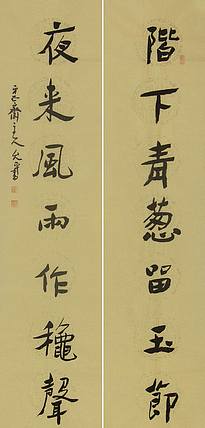 階下青葱留玉節
夜来風雨作穐聲